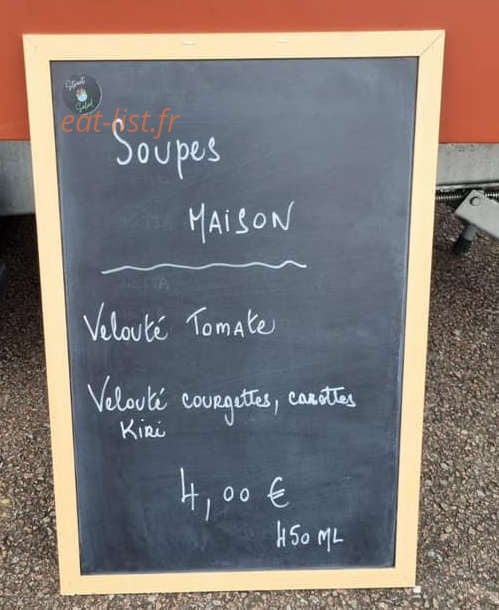 Street
Salad
eat-list.fr
Soupes
MAISON
Velouté Tomate
Velouté courgettes, carottes
Kiri
4,00 €
450 ML